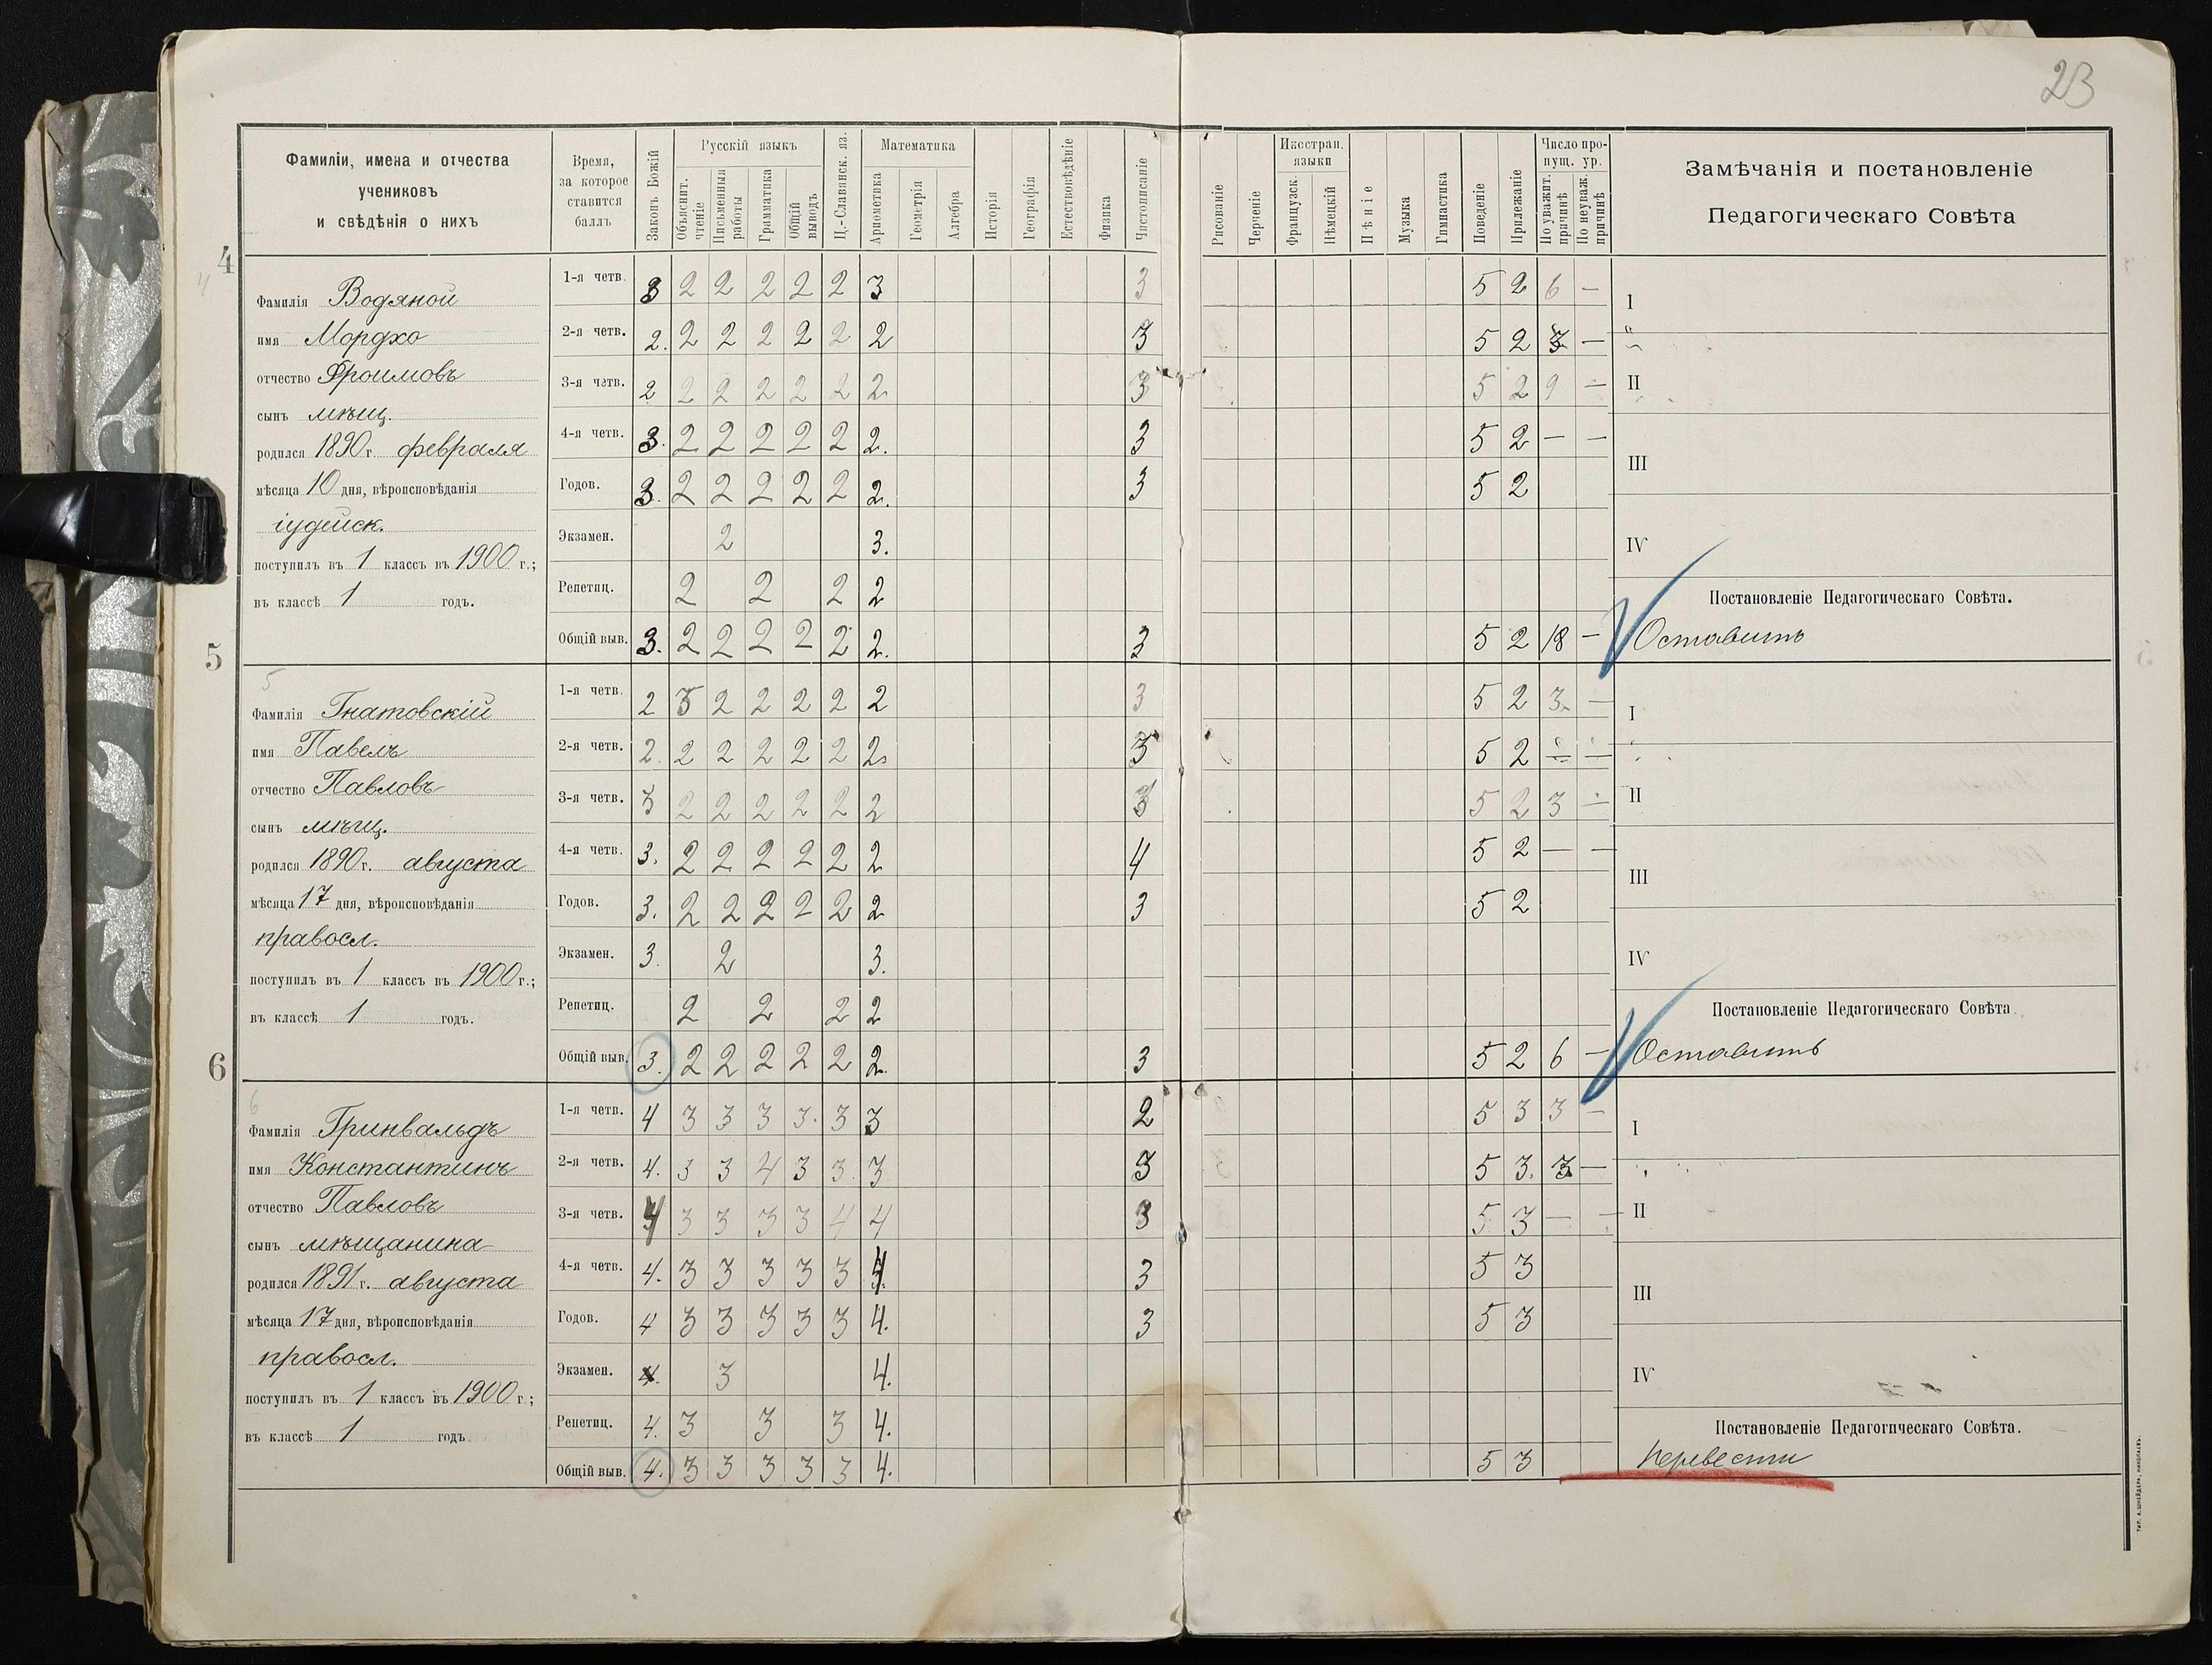 23
Фамиліи, имена и отчества
учениковъ
и свѣдѣнія о нихъ
Время,
за которое
ставится
баллъ
Законъ Божій
Русскій языкъ
Объяснит.
чтеніе
Письменныя
работы
Грамматика
Общій
выводъ
Ц.-Славянск. яз.
Математика
Ариѳметика
Геометрія
Алгебра
Исторія
Географія
Естествовѣдѣніе
Физика
Чистописаніе
Рисованіе
Черченіе
Иностран.
языки
Французск.
Нѣмецкій
Пѣніе
Музыка
Гимнастика
Поведеніе
Прилежаніе
Число про-
пущ. ур.
По уважит.
причинѣ
По неуваж.
причинѣ
Замѣчанія и постановленіе
Педагогическаго Совѣта
4
4
Фамилія Водяной
имя Мордхо
отчество Фроимовъ
сынъ мѣщ.
родился 1890 г. февраля
мѣсяца 10 дня, вѣроисповѣданія
іудейск.
поступилъ въ 1 классъ въ 1900 г.;
въ классѣ 1 годъ.
1-я четв. 3 2 2 2 2 2 3 3 5 2 6 —
2-я четв. 2. 2 2 2 2 2 2 3 5 2 3 —
3-я четв. 2 2 2 2 2 2 2. 3 5 2 9 —
4-я четв. 3. 2 2 2 2 2 2. 3 5 2 — —
Годов. 3. 2 2 2 2 2 2. 3 5 2
Экзамен. 2 3.
Репетиц. 2 2 2 2
Общій выв. 3. 2 2 2 2 2 2. 3 5 2 18 —
I
II
III
IV
Постановленіе Педагогическаго Совѣта.
Оставить
5
5
Фамилія Гнатовскій
имя Павелъ
отчество Павловъ
сынъ мѣщ.
родился 1890 г. августа
мѣсяца 17 дня, вѣроисповѣданія
правосл.
поступилъ въ 1 классъ въ 1900 г.;
въ классѣ 1 годъ.
1-я четв. 2 3 2 2 2 2 2 3 5 2 3. —
2-я четв. 2. 2 2 2 2 2 2. 3 5 2 — —
3-я четв. 3 2 2 2 2 2 2 3 5 2 3 —
4-я четв. 3. 2 2 2 2 2 2 4 5 2 — —
Годов. 3. 2 2 2 2 2 2 3 5 2
Экзамен. 3. 2 3.
Репетиц. 2 2 2 2
Общій выв. 3. 2 2 2 2 2 2. 3 5 2 6 —
I
II
III
IV
Постановленіе Педагогическаго Совѣта.
Оставить
6
6
Фамилія Гринвальдъ
имя Константинъ
отчество Павловъ
сынъ мѣщанина
родился 1891 г. августа
мѣсяца 17 дня, вѣроисповѣданія
правосл.
поступилъ въ 1 классъ въ 1900 г.;
въ классѣ 1 годъ.
1-я четв. 4 3 3 3 3. 3 3 2 5 3 3 —
2-я четв. 4. 3 3 4 3 3. 3 3 5 3. 3 —
3-я четв. 4 3 3 3 3 4 4 3 5 3 — —
4-я четв. 4. 3 3 3 3 3 4. 3 5 3
Годов. 4 3 3 3 3 3 4. 3 5 3
Экзамен. 4. 3 4.
Репетиц. 4. 3 3 3 4.
Общій выв. 4. 3 3 3 3 3 4. 5 3
I
II
III
IV
Постановленіе Педагогическаго Совѣта.
Перевести
ТИП. А. ШНЕЙДЕРА, НИКОЛАЕВЪ.